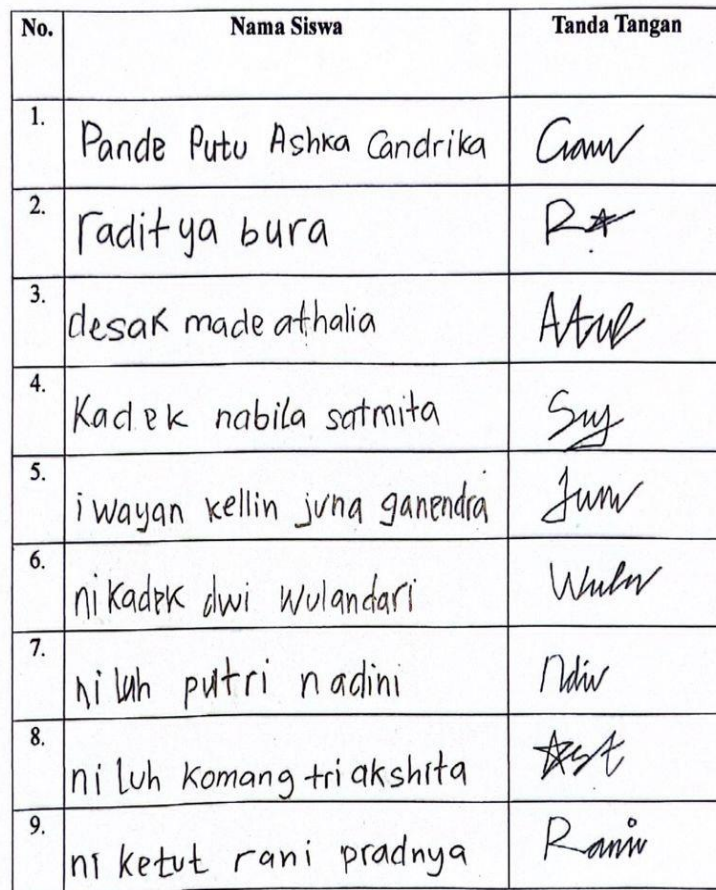 No. Nama Siswa Tanda Tangan
1. Pande Putu Ashka Candrika
2. raditya bura
3. desak made athalia
4. Kadek nabila satmita
5. i wayan kellin juna ganendra
6. ni kadek dwi wulandari
7. ni luh putri nadini
8. ni luh komang tri akshita
9. ni ketut rani pradnya